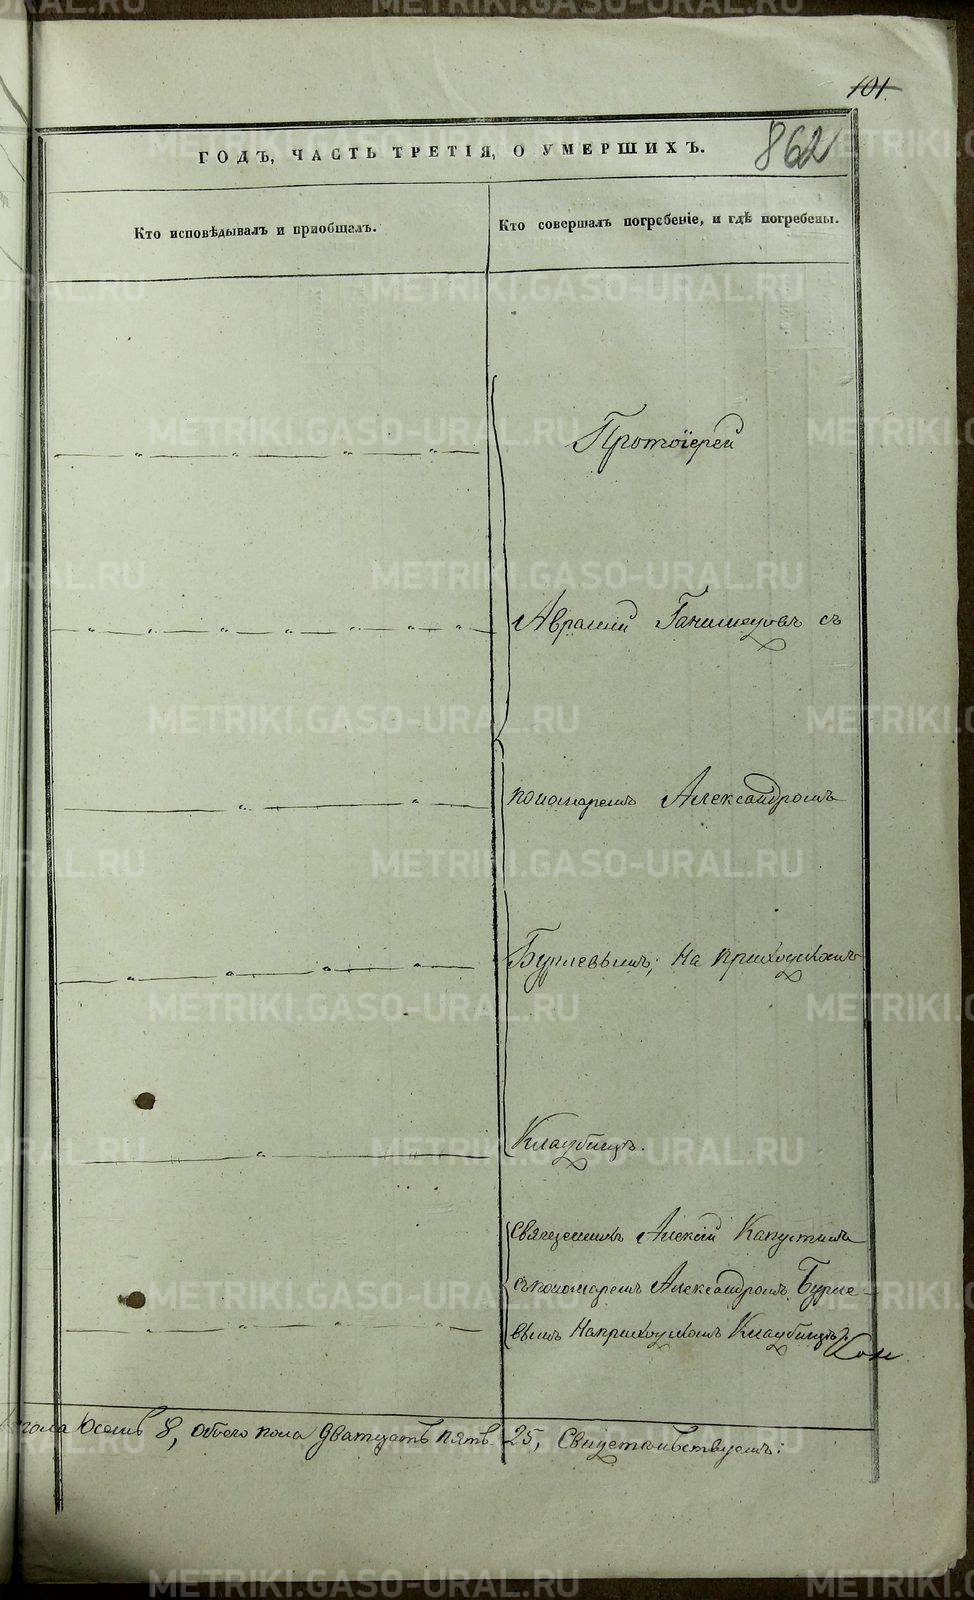 101.
862
ГОДЪ, ЧАСТЬ ТРЕТІЯ, О УМЕРШИХЪ.
Кто исповѣдывалъ и приобщалъ.
Кто совершалъ погребеніе, и гдѣ погребены.
Протоіерей
Аврамій съ
пономаремъ Александромъ
Бурневымъ; на приходскомъ
Кладбищѣ.
Священникъ Алексій Капустинъ
съ пономаремъ Александромъ Бурне-
вымъ на приходскомъ Кладбищѣ.
пола 8, обоего пола дватцать пять 25, Свидетельствуемъ:
METRIKI.GASO-URAL.RU